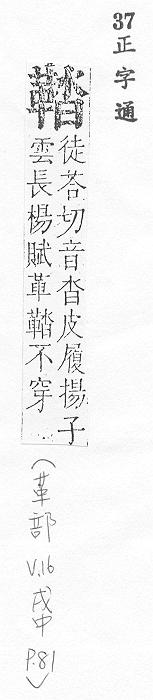 37正字通
鞜
徒荅切音沓皮履揚子
雲長楊賦革鞜不穿
(革部 V.16 戌中 P.81)